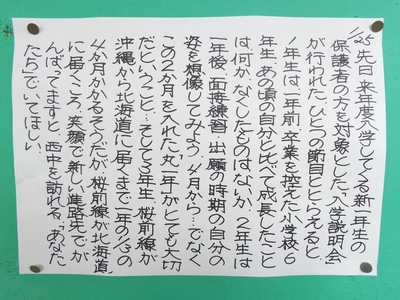 1/25 先日、来年度入学してくる新一年生の
保護者の方を対象とした「入学説明会」
が行われた。ひとつの節目ととらえると、
1年生は、一年前、卒業を控えた小学校6
年生。あの頃の自分と比べて成長したこと
は何か、なくしたものはないか。2年生は
一年後、面接練習、出願の時期の自分の
姿を想像してみよう。4月から…でなく
この2か月を入れた"丸一年"がとても大切
だということ。そして3年生。桜前線が
沖縄から北海道に届くまで一年の1/3の
4か月かかるそうだが、桜前線が北海道
に届くころ、笑顔で「新しい進路先でが
んばってます」と、西中を訪れる、「あなた
たち」でいてほしい。